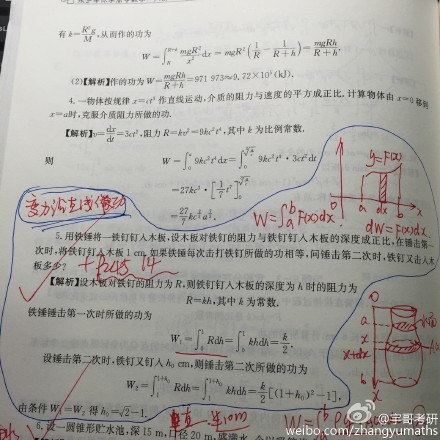 有 k=R²g/M, 从而作的功为
W=∫_R^{R+h} mgR²/x² dx=mgR²(1/R-1/(R+h))=mgRh/(R+h).
(2)【解析】作的功为 W=mgRh/(R+h)=971 973≈9.72×10⁵(kJ).
4. 一物体按规律 x=ct³ 作直线运动,介质的阻力与速度的平方成正比,计算物体由 x=0 移到
x=a 时,克服介质阻力所做的功.
【解析】v=dx/dt=3ct²,阻力 R=kv²=9kc²t⁴,其中 k 为比例常数.
则 W=∫₀^a 9kc²t⁴dx=∫₀ 9kc²t⁴·3ct²dt
=27kc³·[1/7 t⁷]
=27/7 kc^{2/3}a^{7/3}.
y=F(x)
a dx b x
W=∫_a^b F(x)dx.
dW=F(x)dx.
变力沿直线做功
5. 用铁锤将一铁钉钉入木板,设木板对铁钉的阻力与铁钉钉入木板的深度成正比,在锤击第一
次时,将铁钉钉入木板 1 cm,如果铁锤每次击打铁钉所做的功相等,问锤击第二次时,铁钉又击入木
板多少?
【解析】设木板对铁钉的阻力为 R,则铁钉钉入木板的深度为 h 时的阻力为
R=kh,其中 k 为常数.
铁锤锤击第一次时所做的功为
W₁=∫₀¹Rdh=∫₀¹khdh=k/2.
设锤击第二次时,铁钉又钉入 h₀ cm,则锤击第二次所做的功为
W₂=∫₁^{1+h₀}Rdh=∫₁^{1+h₀}khdh=k/2[(1+h₀)²-1],
由条件 W₁=W₂ 得 h₀=√2-1.
O
a
x
x+dx
b
x
6. 设一圆锥形贮水池,深 15 m,口径 20 m,盛满水,
W=∫_a^b ρg
@宇哥考研
weibo.com/zhangyumaths